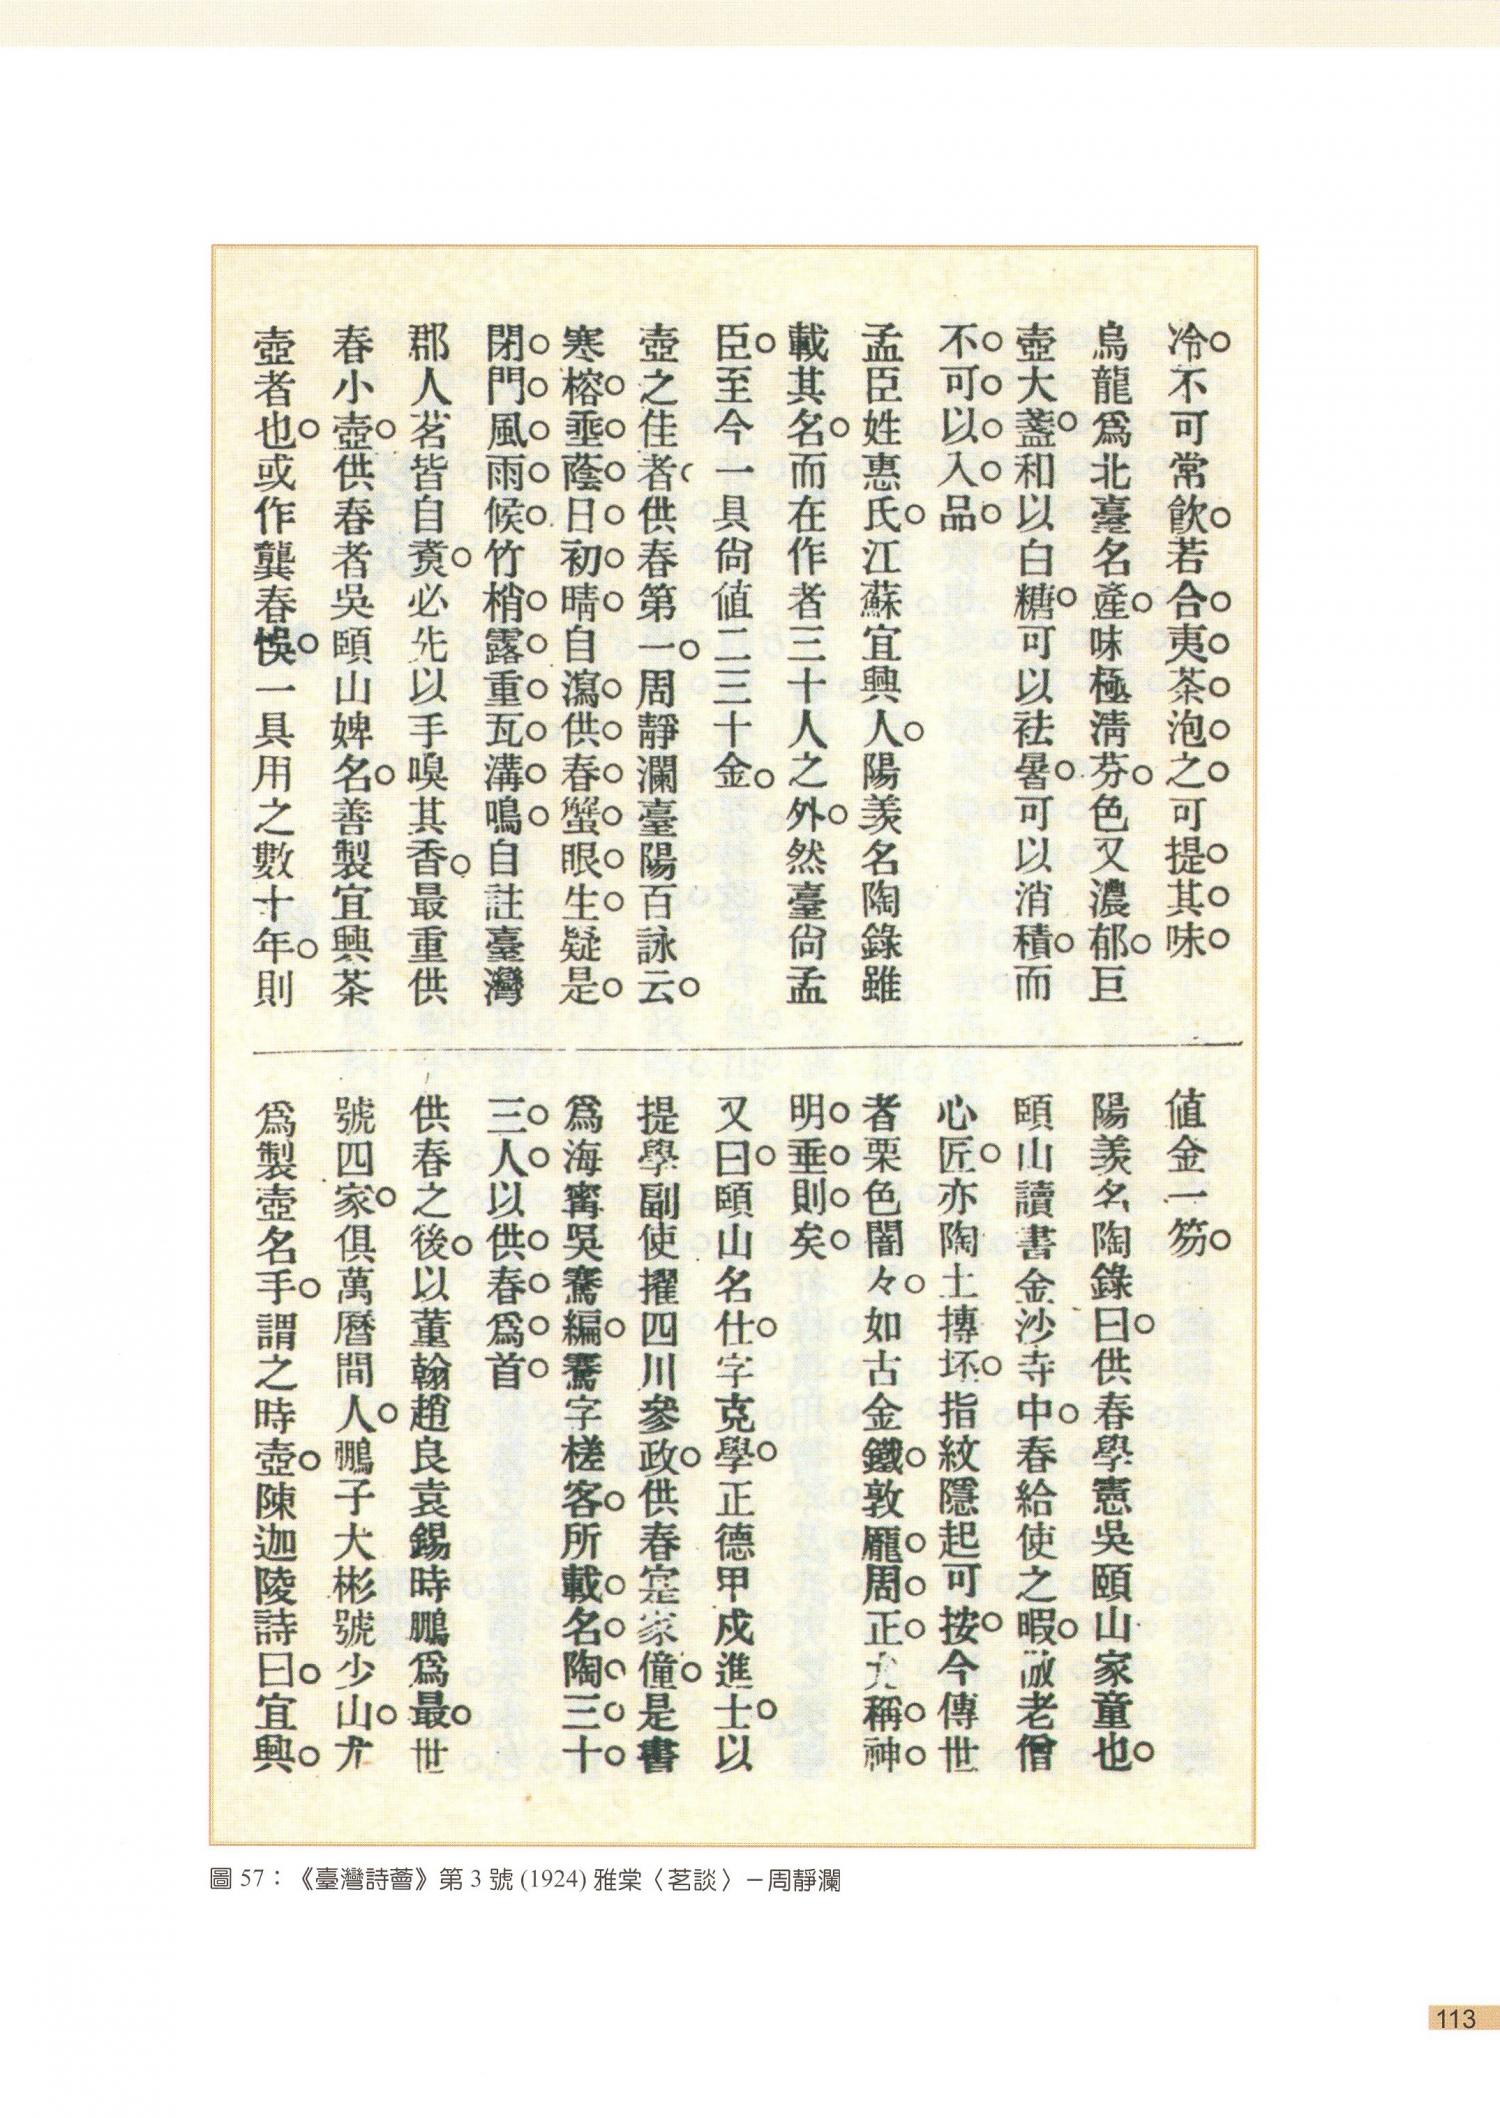 冷不可常飮若合夷茶泡之可提其味
烏龍爲北臺名產味極淸芬色又濃郁巨
壺大盞和以白糖可以袪暑可以消積而
不可以入品
孟臣姓惠氏江蘇宜興人陽羨名陶錄雖
載其名而在作者三十人之外然臺尙孟
臣至今一具尙値二三十金
壺之佳者供春第一周靜瀾臺陽百詠云
寒榕垂蔭日初晴自瀉供春蟹眼生疑是
閉門風雨候竹梢露重瓦溝鳴自註臺灣
郡人茗皆自煑必先以手嗅其香最重供
春小壺供春者吳頤山婢名善製宜興茶
壺者也或作龔春悞一具用之數十年則
値金一笏
陽羨名陶錄曰供春學憲吳頤山家童也
頤山讀書金沙寺中春給使之暇倣老僧
心匠亦陶土摶坯指紋隱起可按今傳世
者栗色闇々如古金鐵敦龐周正尤稱神
明垂則矣
又曰頤山名仕字克學正德甲戍進士以
提學副使擢四川參政供春寔家僮是書
爲海甯吳騫編騫字槎客所載名陶三十
三人以供春爲首
供春之後以董翰趙良袁錫時鵬爲最世
號四家俱萬曆間人鵬子大彬號少山尤
爲製壺名手謂之時壺陳迦陵詩曰宜興
圖 57：《臺灣詩薈》第 3 號 (1924) 雅棠〈茗談〉－周靜瀾
113